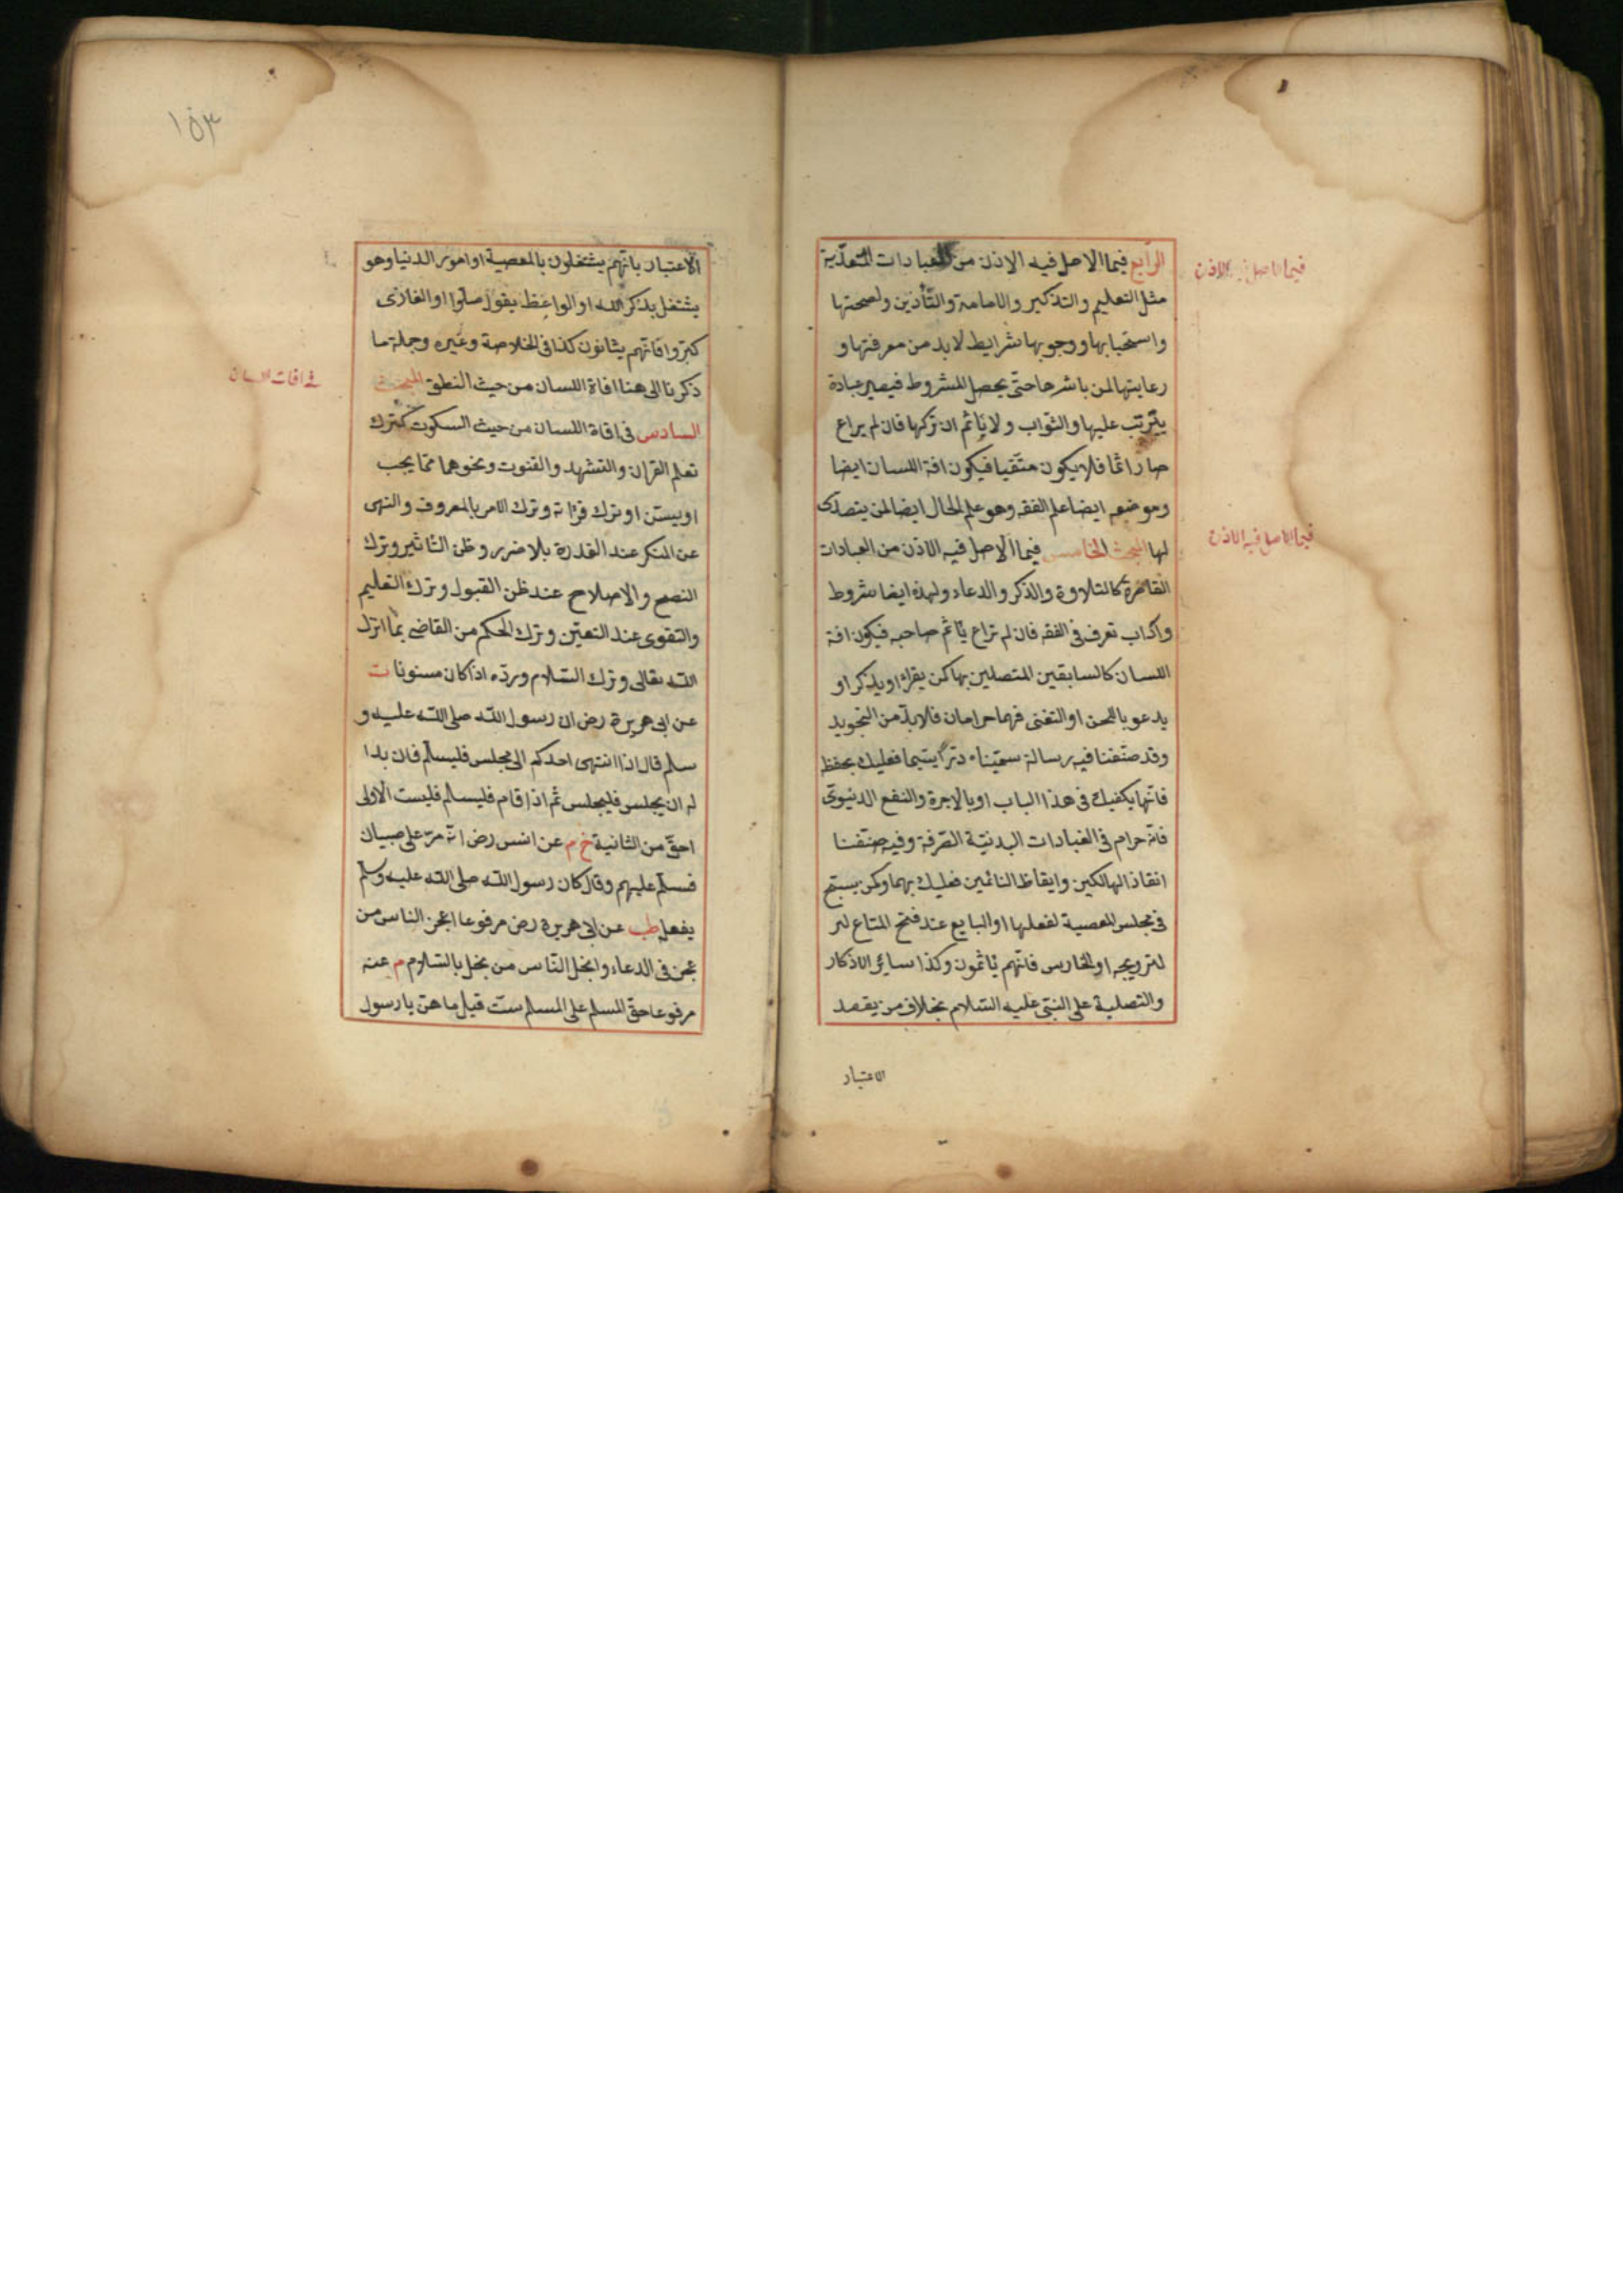 الرابع فيما الاصل فيه الاذن من العبادات المتعدّية
فيما الاصل فيه الاذن
مثل التعليم والتذكير والامامة والتأذين ولصحتها
واستحبابها ووجوبها شرايط لا بد من معرفتها و
رعايتها لمن باشرها حتى يحصل المشروط فيصير عبادة
يترتب عليها والثواب ولا يأثم ان تركها فان لم يراع
صار اثما فلا يكون متقيا فيكون افة اللسان ايضا
وموضعه ايضا علم الفقه وهو علم الحال ايضا لمن يتصدى
لها المبحث الخامس فيما الاصل فيه الاذن من العبادات
فيما الاصل فيه الاذن
القاصرة كالتلاوة والذكر والدعاء ولهذه ايضا شروط
واداب تعرف فى الفقه فان لم تراع يأثم صاحبه فيكون افة
اللسان كالسابقين المتصلين بها كمن يقرأ او يذكر او
يدعو باللحن او التغنى فهما حرامان فلا بدّ من التجويد
وقد صنّفنا فيه رسالة سمّيناه درّا يتيما فعليك بحفظ
فانّها يكفيك فى هذا الباب او بالاجرة والنفع الدنيوىّ
فانه حرام فى العبادات البدنيّة الصّرفة وفيه صنّفنا
انقاذ الهالكين وايقاظ النائمين فعليك بهما وكمن يسبّح
فى مجلس المعصية لفعلها او البايع عند فتح المتاع لتر
لترويجه او الحارس فانهم يأثمون وكذا سائر الاذكار
والتصلية على النبىّ عليه السّلام بخلاف من يقصد
الاعتبار
١٥٣
الاعتبار بانهم يشتغلون بالمعصية او امور الدنيا وهو
يشتغل بذكر الله او الواعظ يقول صلّوا او الغازى
كبّروا فانهم يثابون كذا فى الخلاصة وغيره وجملة ما
ذكرنا الى هنا افاة اللسان من حيث النطق المبحث
فى افات اللسان
السادس فى افاة اللسان من حيث السكوت كترك
تعلم القران والتشهد والقنوت ونحوهما ممّا يجب
او يسنّ او ترك قرائة وترك الامر بالمعروف والنهى
عن المنكر عند القدرة بلا ضرر وظن التاثير وترك
النصح والاصلاح عند ظن القبول وترك التعليم
والتقوى عند التعيّن وترك الحكم من القاضى بما انزل
الله تعالى وترك السّلام وردّه اذا كان مسنونا ت
عن ابى هريرة رض ان رسول الله صلى الله عليه و
سلم قال اذا انتهى احدكم الى مجلس فليسلّم فان بدا
له ان يجلس فليجلس ثم اذا قام فليسلم فليست الاولى
احقّ من الثانية خ م عن انس رض انه مرّ على صبيان
فسلّم عليهم وقال كان رسول الله صلى الله عليه وسلم
يفعله طب عن ابى هريرة رض مرفوعا اعجز الناس من
عجز فى الدعاء وابخل النّاس من بخل بالسّلام م عنه
مرفوعا حق المسلم على المسلم ستّ قيل ما هنّ يا رسول